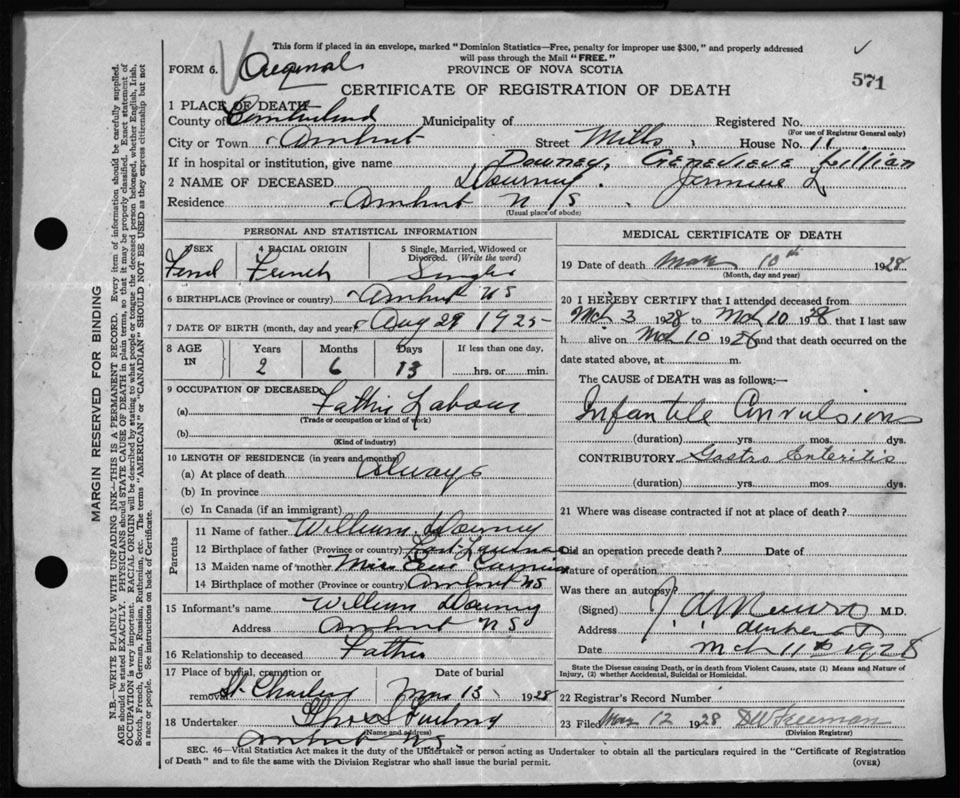 This form if placed in an envelope, marked "Dominion Statistics—Free, penalty for improper use $300," and properly addressed
will pass through the Mail "FREE."
FORM 6. Original
PROVINCE OF NOVA SCOTIA
571
CERTIFICATE OF REGISTRATION OF DEATH
1 PLACE OF DEATH—
County of Cumberland Municipality of Registered No.
(For use of Registrar General only)
City or Town Amherst Street Mills House No. 11
If in hospital or institution, give name Downey, GENEVIEVE Lillian
2 NAME OF DECEASED Downey. L
Residence Amherst N S
(Usual place of abode)
PERSONAL AND STATISTICAL INFORMATION
3 SEX 4 RACIAL ORIGIN 5 Single, Married, Widowed or
Divorced. (Write the word)
Femal French Single
6 BIRTHPLACE (Province or country) Amherst NS
7 DATE OF BIRTH (month, day and year) Aug 29 1925
8 AGE IN Years Months Days If less than one day,
2 6 13 hrs. or min.
9 OCCUPATION OF DECEASED
(a) Father Labour
(Trade or occupation or kind of work)
(b)
(Kind of industry)
10 LENGTH OF RESIDENCE (in years and months)
(a) At place of death Always
(b) In province
(c) In Canada (if an immigrant)
Parents
11 Name of father William Downey
12 Birthplace of father (Province or country)
13 Maiden name of mother
14 Birthplace of mother (Province or country) Amherst NS
15 Informant's name William Downey
Address Amherst NS
16 Relationship to deceased Father
17 Place of burial, cremation or Date of burial
removal St. Charles Mar 13 1928
18 Undertaker
(Name and address)
Amherst NS.
MEDICAL CERTIFICATE OF DEATH
19 Date of death Mar 10th 1928
(Month, day and year)
20 I HEREBY CERTIFY that I attended deceased from
Mch 3 1928 to Mch 10 1928 that I last saw
h alive on Mch 10 1928 and that death occurred on the
date stated above, at m.
The CAUSE of DEATH was as follows:—
Infantile Convulsions
(duration) yrs. mos. dys.
CONTRIBUTORY Gastro Enteritis
(duration) yrs. mos. dys.
21 Where was disease contracted if not at place of death?
Did an operation precede death? Date of
Nature of operation
Was there an autopsy?
(Signed) M.D.
Address Amherst
Date Mch 11th 1928
State the Disease causing Death, or in death from Violent Causes, state (1) Means and Nature of
Injury, (2) whether Accidental, Suicidal or Homicidal.
22 Registrar's Record Number
23 Filed Mar 12 1928 DW Freeman
(Division Registrar)
SEC. 46—Vital Statistics Act makes it the duty of the Undertaker or person acting as Undertaker to obtain all the particulars required in the "Certificate of Registration
of Death" and to file the same with the Division Registrar who shall issue the burial permit. (OVER)
MARGIN RESERVED FOR BINDING
N.B.—WRITE PLAINLY WITH UNFADING INK—THIS IS A PERMANENT RECORD. Every item of information should be carefully supplied.
AGE should be stated EXACTLY. PHYSICIANS should STATE CAUSE OF DEATH in plain terms, so that it may be properly classified. Exact statement of
OCCUPATION is very important. RACIAL ORIGIN will be described by stating to what people or tongue the deceased person belonged, whether English, Irish,
Scotch, French, German, Russian, Ruthenian, etc. The terms "AMERICAN" or "CANADIAN" SHOULD NOT BE USED as they express citizenship but not
a race or people. See instructions on back of Certificate.